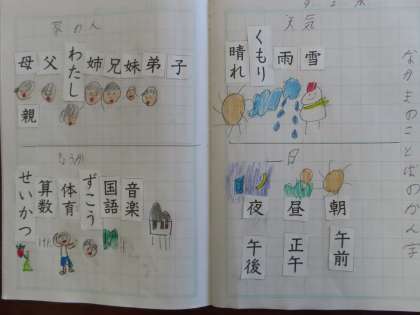 なかまのことばのかん字
天気
雪
雨
くもり
晴れ
一日
朝
昼
夜
午前
正午
午後
子
弟
妹
兄
姉
わたし
父
母
親
音楽
国語
ずこう
体育
算数
せいかつ